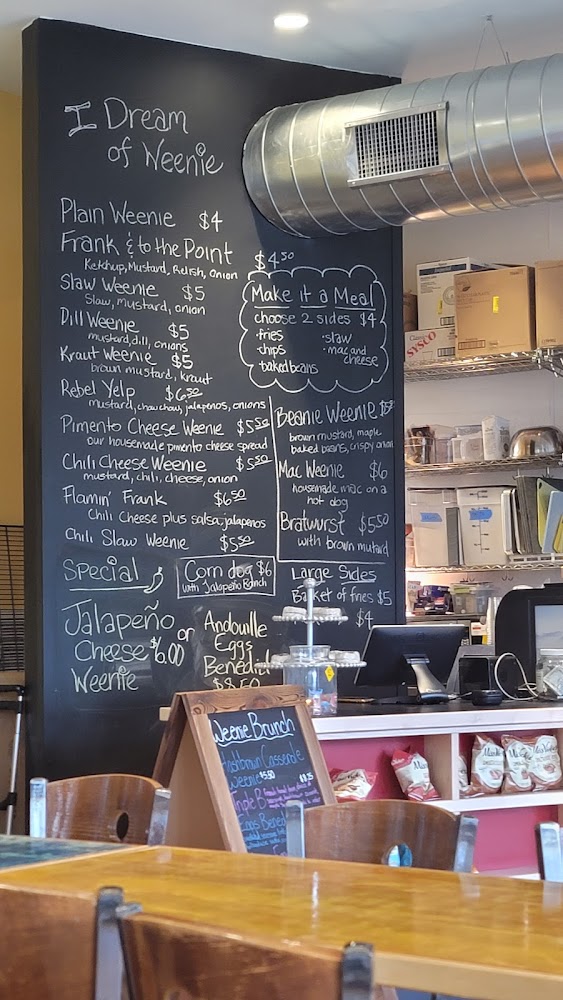 I Dream
of Weenie
Plain Weenie $4
Frank & to the Point $4.50
Ketchup, Mustard, Relish, Onion
Slaw Weenie $5
Slaw, mustard, onion
Dill Weenie $5
mustard, dill, onions
Kraut Weenie $5
brown mustard, kraut
Rebel Yelp $6.50
mustard, chow chow, jalapenos, onions
Pimento Cheese Weenie $5.50
our housemade pimento cheese spread
Chili Cheese Weenie $5.50
mustard, chili, cheese, onion
Flamin' Frank $6.50
Chili Cheese plus salsa, jalapenos
Chili Slaw Weenie $5.50
Make it a Meal
choose 2 sides $4
fries
chips
baked beans
-slaw
-mac and
cheese
Beanie Weenie
brown mustard, maple
baked beans, crispy onion
Mac Weenie $6
housemade mac on a
hot dog
Bratwurst $5.50
with brown mustard
Special
Jalapeño
Cheese $6.00
Weenie
or
Corn dog $6
with Jalapeño Ranch
Andouille
Eggs
Benedict
$8.50
Large Sides
Basket of fries $5
$4
Weenie Brunch
Hashbrown Casserole
Weenie $5.50
Triple B
Eggs Benedict
SYSCO